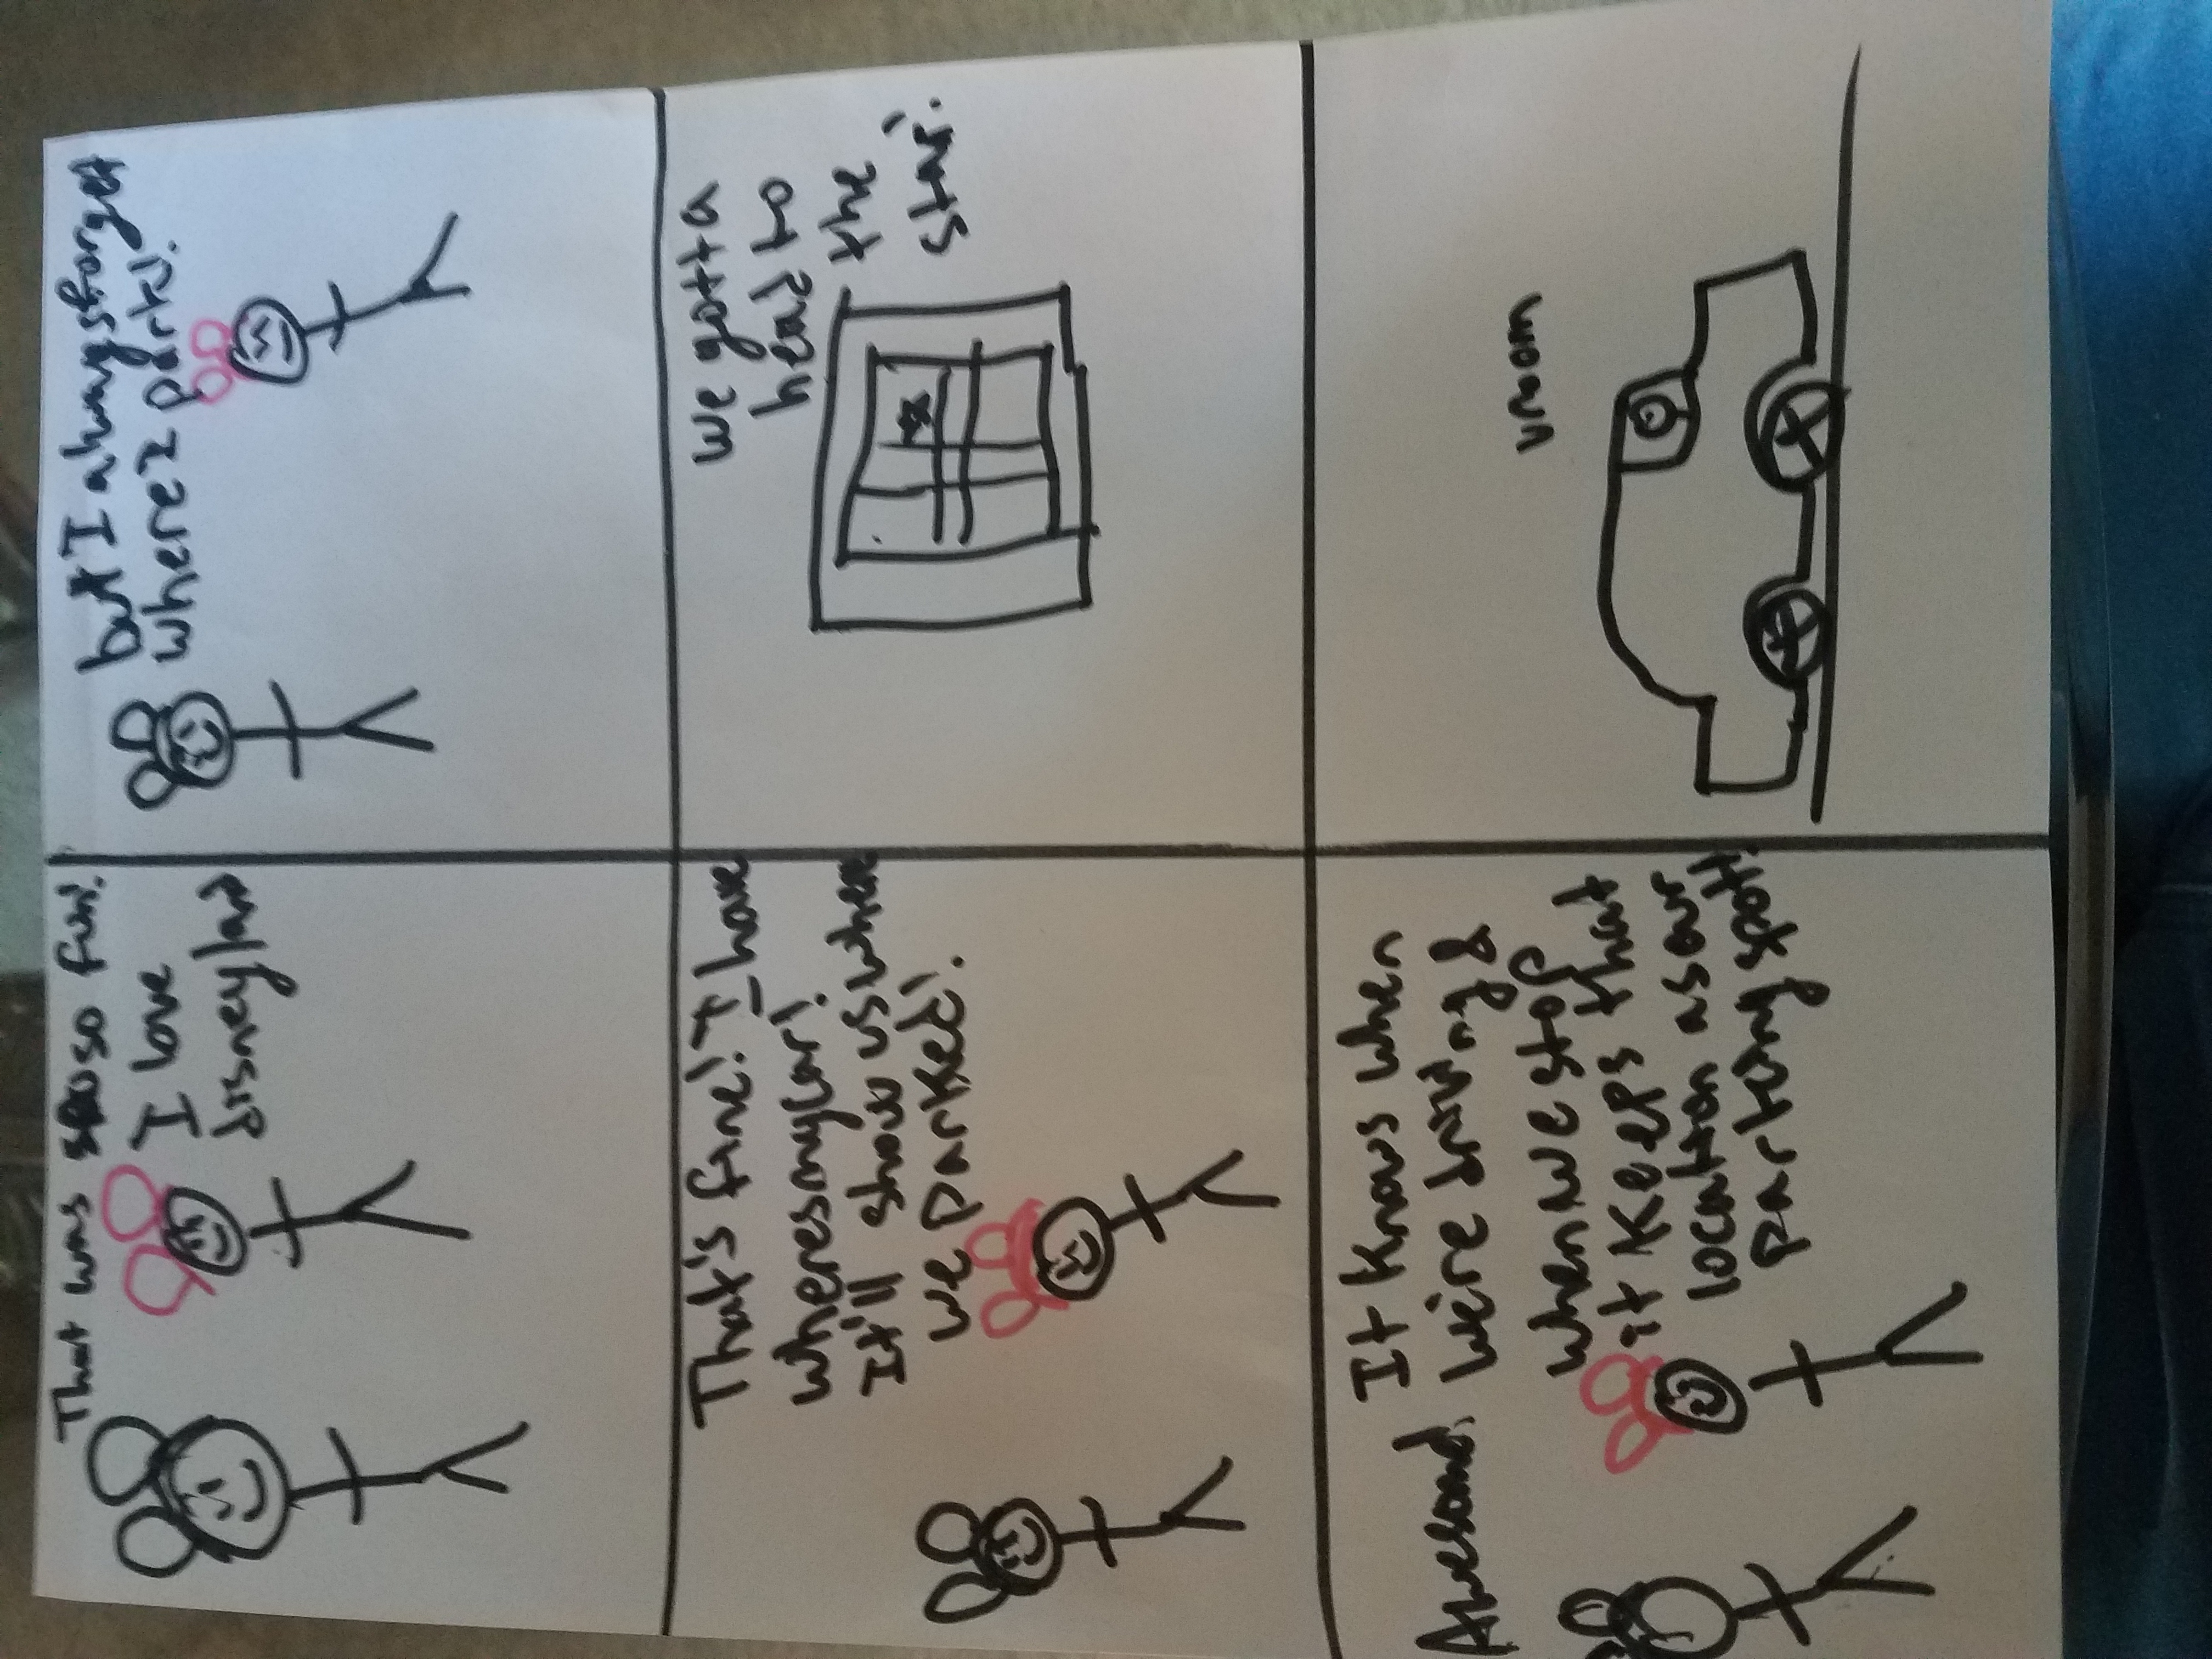 That was so so fun!
I love
disneyland
but I always forget
where I park!
That's fine! I have
wheresmycar!
It'll show us where
we parked!
we gotta
head to
the
star!
Awesome!
It knows when
we're driving &
when we stop
it keeps that
location as our
parking spot!
vroom